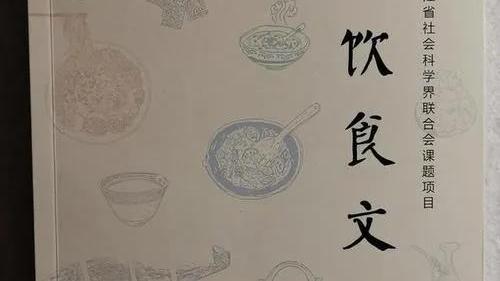 省社会科学界联合会课题项目
饮食文